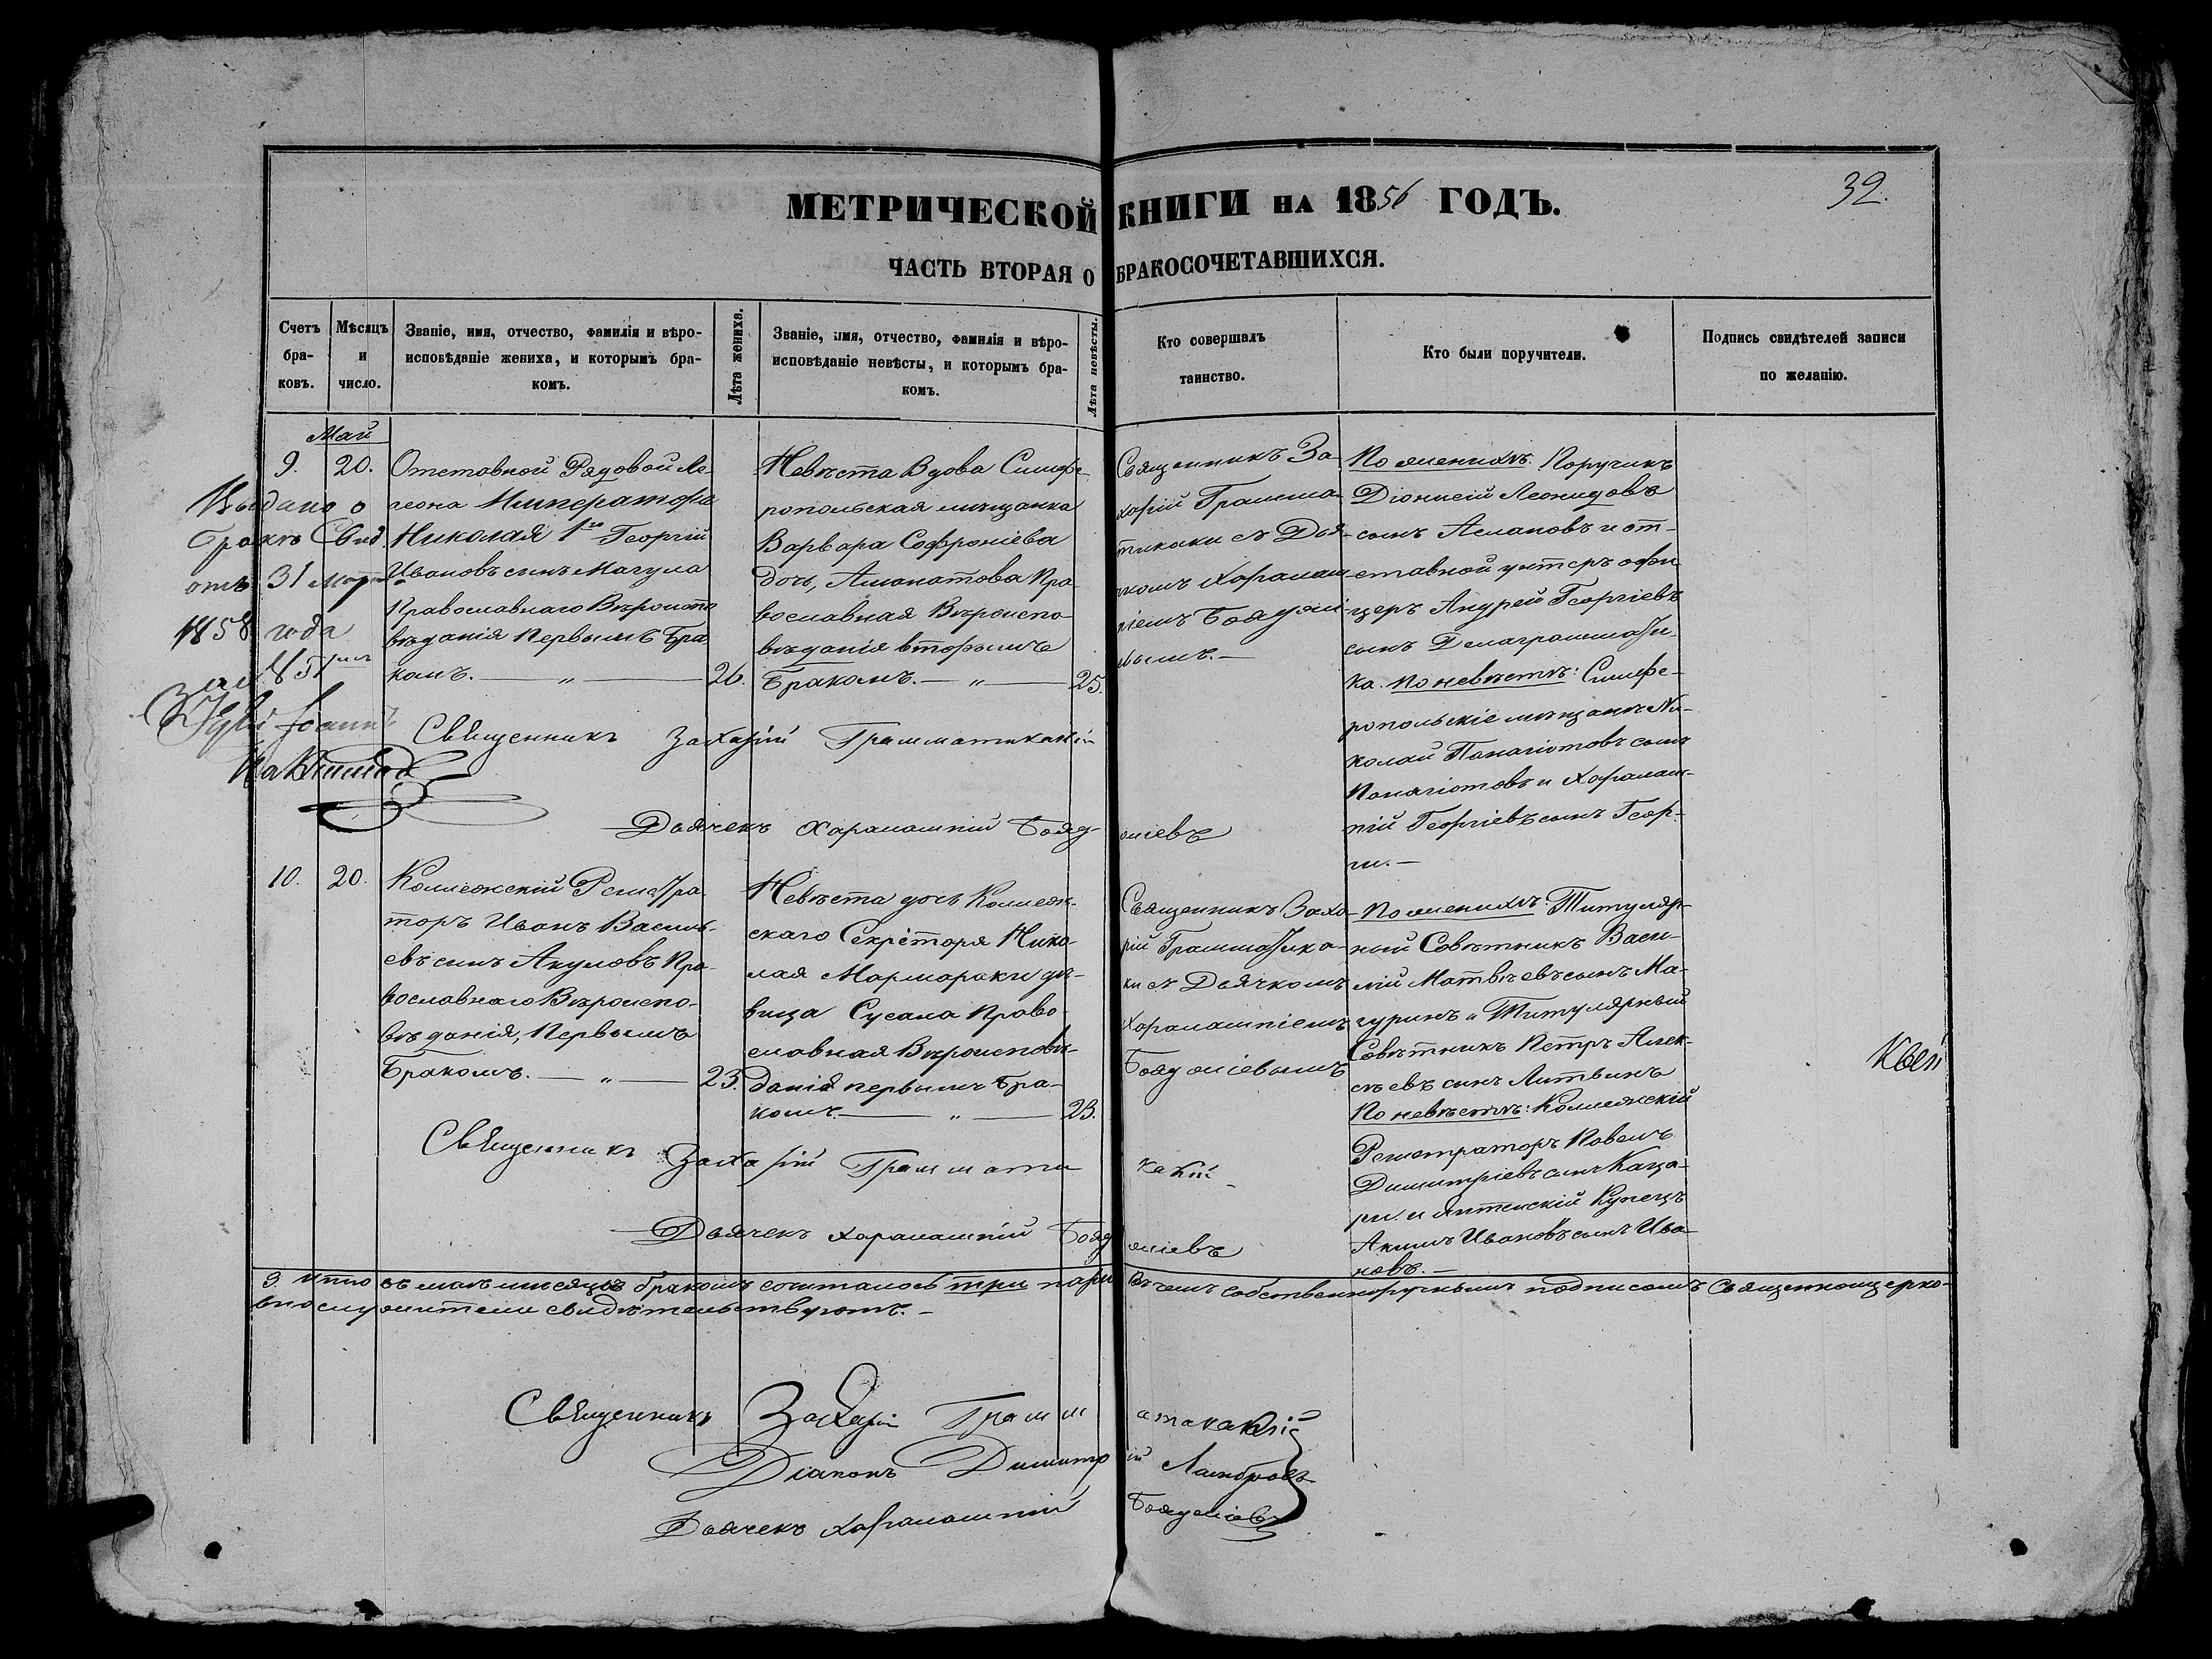 МЕТРИЧЕСКОЙ КНИГИ НА 1856 ГОДЪ.
32.
ЧАСТЬ ВТОРАЯ О БРАКОСОЧЕТАВШИХСЯ.
Счетъ бра-ковъ.
Мѣсяцъ и число.
Званіе, имя, отчество, фамилія и вѣро-
исповѣданіе жениха, и которымъ бра-
комъ.
Лѣта жениха.
Званіе, имя, отчество, фамилія и вѣро-
исповѣданіе невѣсты, и которымъ бра-
комъ.
Лѣта невѣсты.
Кто совершалъ
таинство.
Кто были поручители.
Подпись свидѣтелей записи
по желанію.
Май
9. 20.
Отставной Рядовой Ле-
геона Императора
Николая 1го Георгій
Ивановъ сынъ Мачула
Православнаго Вѣроиспо
вѣданія Первымъ Бра
комъ. — „ — 26.
Невѣста Вдова Симфе-
ропольская мѣщанка
Варвара Софроніева
дочь, Аманатова Пра-
вославная Вѣроиспо-
вѣданія вторымъ
Бракомъ. — „ — 25.
Священникъ За-
харій Грамма-
тикаки съ Дья-
чкомъ Харалам-
піемъ Бояджі-
евымъ. —
По женихѣ: Поручикъ
Діонисій Леонидовъ
сынъ Аслановъ и от-
ставной унтеръ офи
церъ Андрей Георгіевъ
сынъ Делаграммати-
ка. по невѣстѣ: Симфе-
ропольскіе мѣщане Ни-
колай Панагіотовъ сынъ
Панагіотовъ и Харалам-
пій Георгіевъ сынъ Геор-
ги. —
Выдано о
бракѣ Свид.
отъ 31 Марта
1858 года
за № 51
Священникъ Захарій Грамматикакій
Дьячекъ Харалампій Бояджіевъ
10. 20.
Коллежскій Регистра
торъ Иванъ Василь-
евъ сынъ Акуловъ Пра-
вославнаго Вѣроиспо-
вѣданія, Первымъ
Бракомъ. — „ — 23.
Невѣста дочь Коллеж-
скаго Секрѣторя Нико-
лая Мармараки дѣ-
вица Сусана Право-
славная Вѣроисповѣ-
данія первымъ бра-
комъ. — „ — 23.
Священникъ Заха-
рій Грамматика-
ки съ Дьячкомъ
Харалампіемъ
Бояджіевымъ
По женихѣ: Титуляр-
ный Совѣтникъ Васи-
лій Матвѣевъ сынъ Ма-
гуринъ и Титулярный
Совѣтникъ Петръ Алек-
сѣевъ сынъ Литвинъ
По невѣстѣ: Коллежскій
Регистраторъ Павелъ
Димитріевъ сынъ Каца-
ри. и Ялтенскій Купецъ
Акимъ Ивановъ сынъ Ива-
новъ. —
Священникъ Захарій Грамматикакій
Дьячекъ Харалампій Бояджіевъ
3. Итого въ маѣ мѣсяцѣ бракомъ сочталось три пары Въ чемъ собственноручнымъ подписомъ Священноцерко-
внослужители свидѣтельствуютъ. —
Священникъ Захарій Грамматакакій
Діаконъ Димитрій Ламбровъ
Дьячекъ Харалампій Бояджіевъ